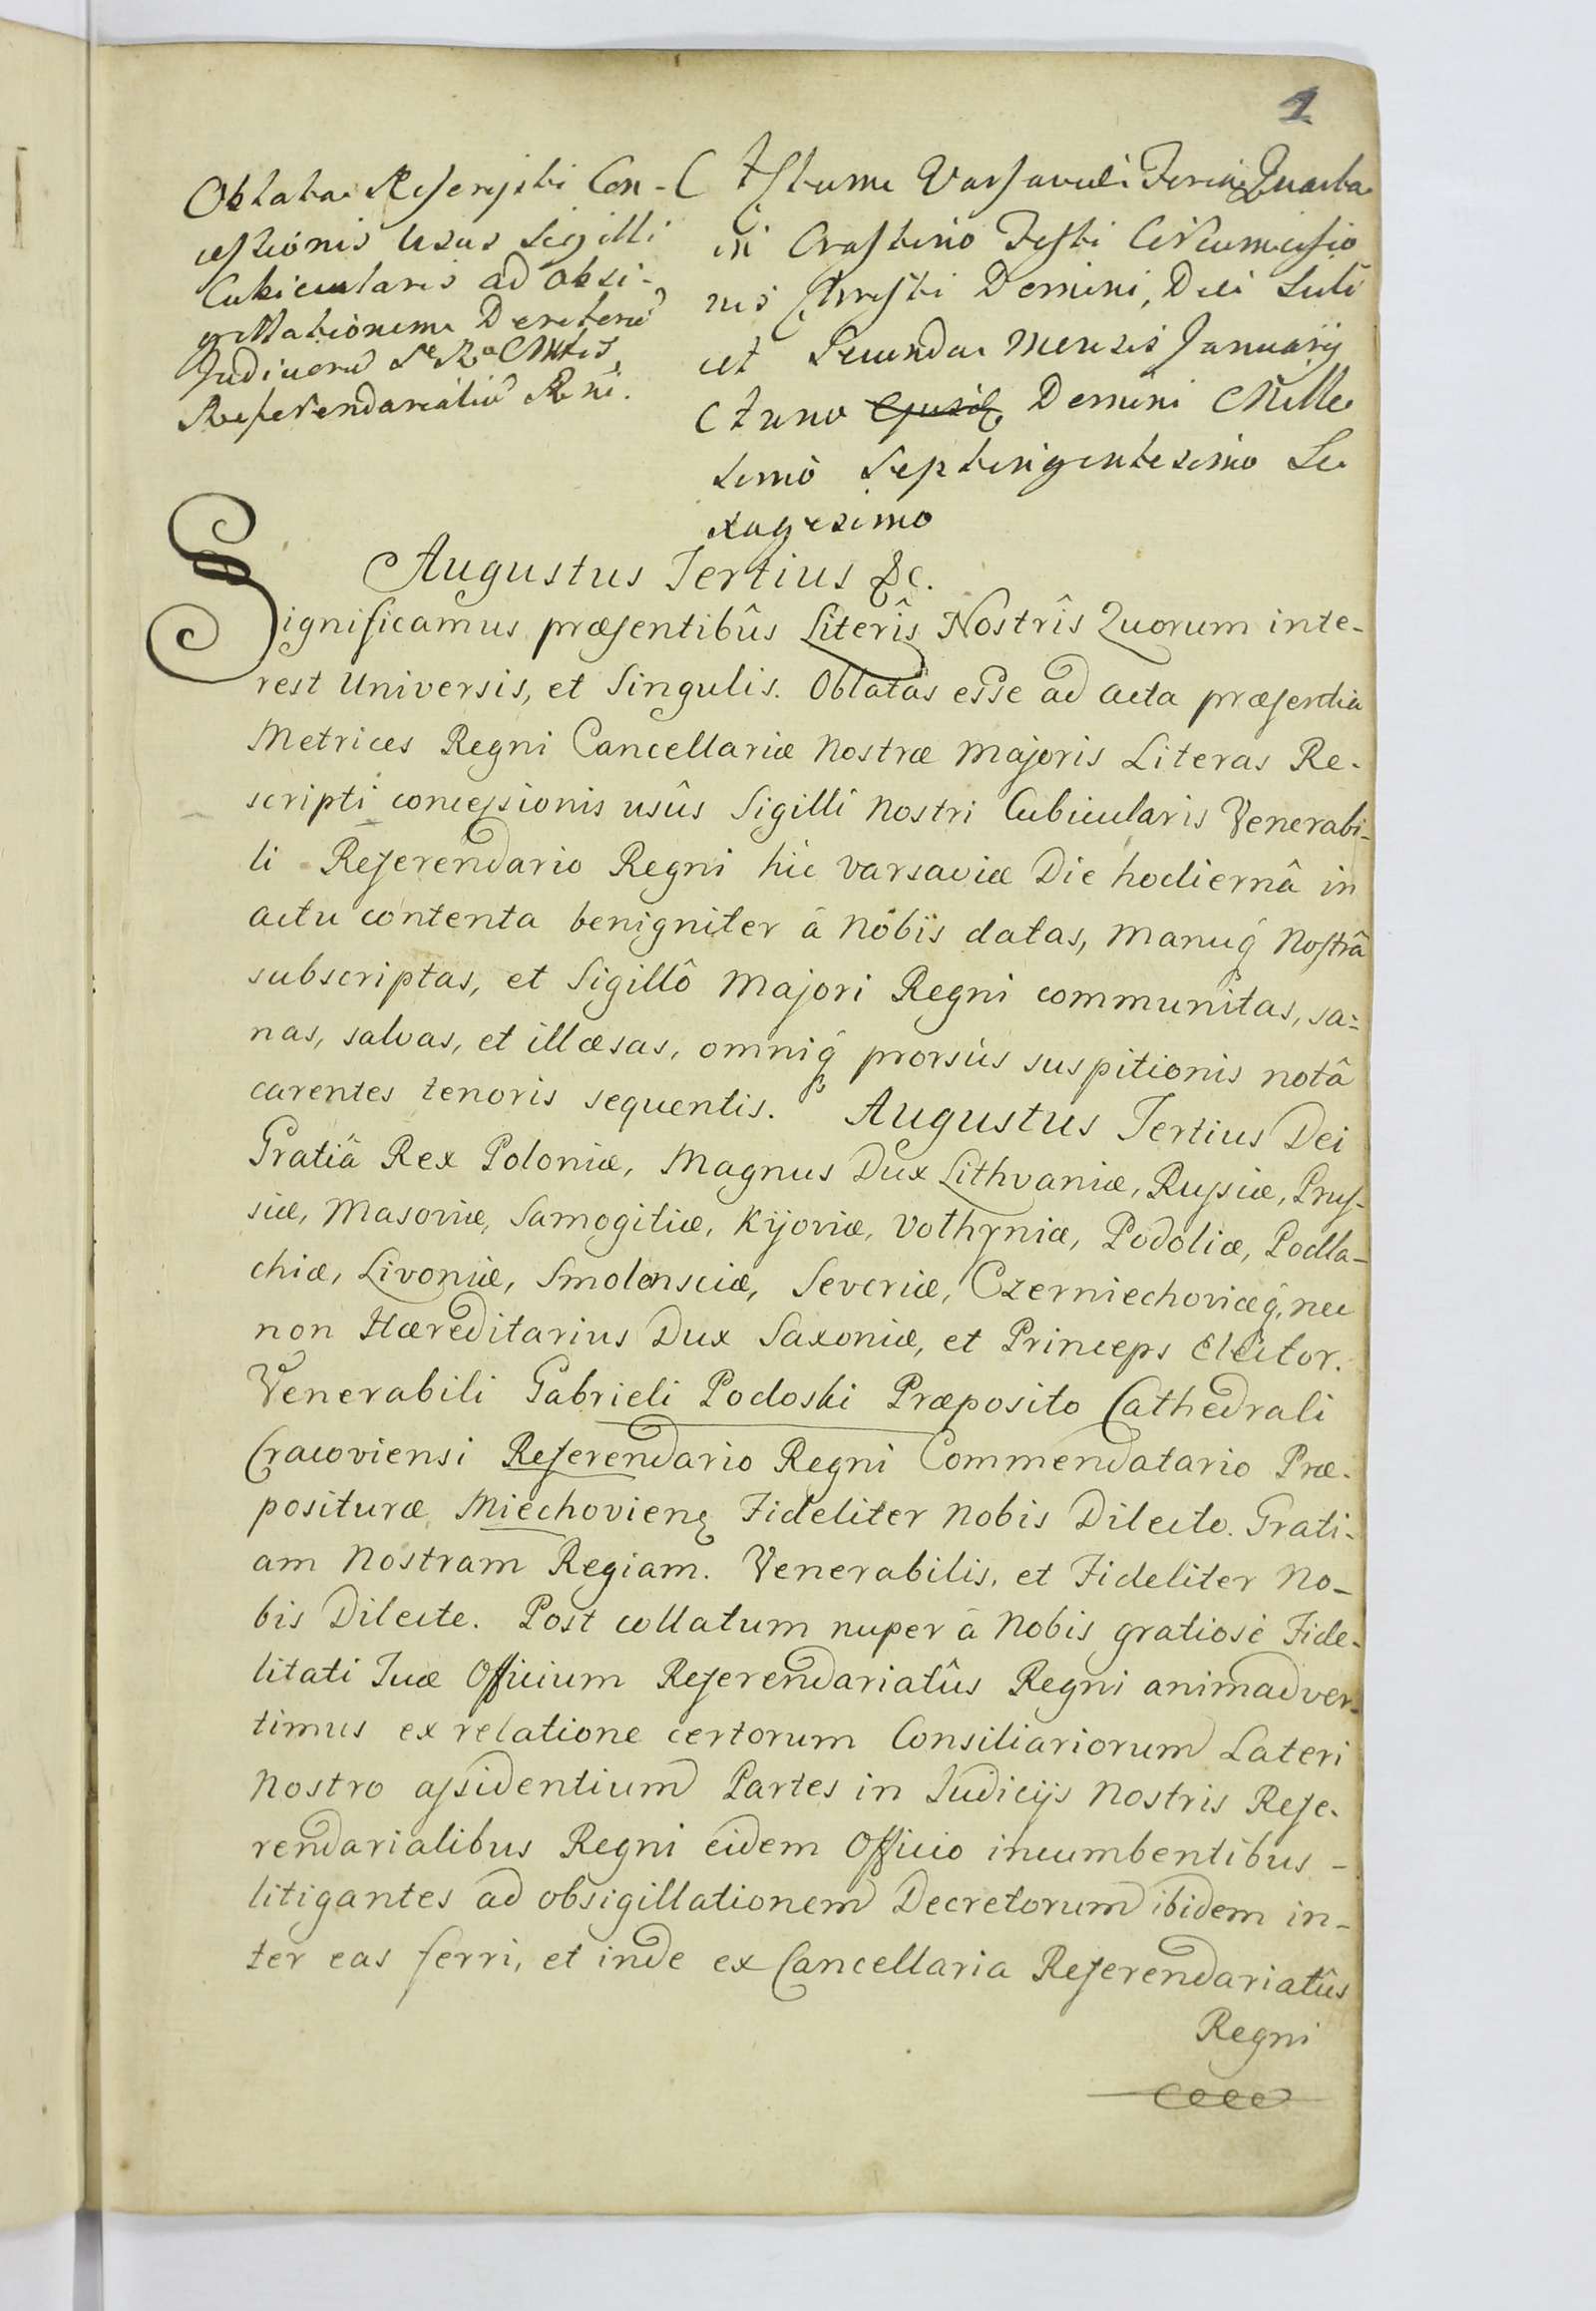 1
Oblata Rescripti Con-
cessionis Usus Sigilli
Cubicularis ad obsi-
gillationem Decretorũ
Judiciorũ Sᵉ Rᵃ Mttis
Referendarialiũ Rni.
Actum Varsaviæ Feria Quarta
in Crastino Festi Circumcisio
nis Christi Domini, Die Scili
cet Secunda Mensis Januarij
Anno Domini Mille
simô Septingentesimo Se
xagesimo
Augustus Tertius &c.
Significamus præsentibûs Literîs Nostrîs Quorum inte-
rest Universis, et Singulis. Oblatas esse ad acta præsentia
Metrices Regni Cancellariæ Nostræ Majoris Literas Re-
scripti concessionis usûs Sigilli Nostri Cubicularis Venerabi-
li Referendario Regni hic Varsaviæ Die hodiernâ in
actu contenta benigniter à Nobis datas, manuq̃ Nostrâ
subscriptas, et Sigillô Majori Regni communitas, sa-
nas, salvas, et illæsas, omniq̃ prorsùs suspitionis notâ
carentes tenoris sequentis. Augustus Tertius Dei
Gratiâ Rex Poloniæ, Magnus Dux Lithvaniæ, Russiæ, Prus-
siæ, Masoviæ, Samogitiæ, Kijoviæ, Volhyniæ, Podoliæ, Podla-
chiæ, Livoniæ, Smolensciæ, Severiæ, Czerniechoviæq̃, nec
non Hæreditarius Dux Saxoniæ, et Princeps Elector.
Venerabili Gabrieli Podoski Præposito Cathedrali
Cracoviensi Referendario Regni Commendatario Præ-
posituræ Miechovienȩ Fideliter Nobis Dilecto. Grati-
am Nostram Regiam. Venerabilis, et Fideliter No-
bis Dilecte. Post collatum nuper à Nobis gratiosè Fide-
litati Tuæ Officium Referendariatûs Regni animadver-
timus ex relatione certorum Consiliariorum Lateri
Nostro assidentium Partes in Judicijs Nostris Refe-
rendarialibus Regni eidem Officio incumbentibus -
litigantes ad obsigillationem Decretorum ibidem in-
ter eas ferri, et inde ex Cancellaria Referendariatûs
Regni